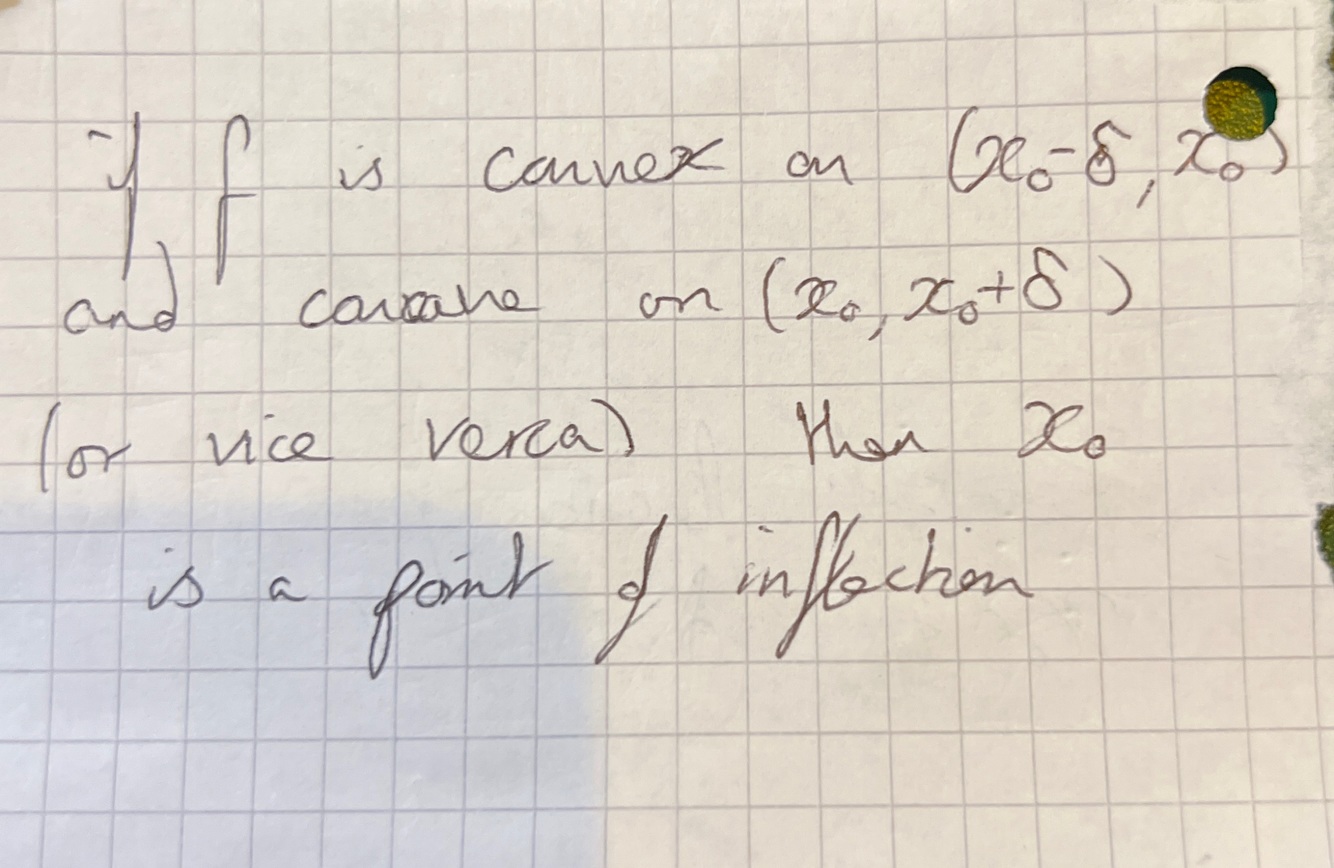 if f is convex on (x₀-δ, x₀)
and concave on (x₀, x₀+δ)
(or vice versa) then x₀
is a point of inflection